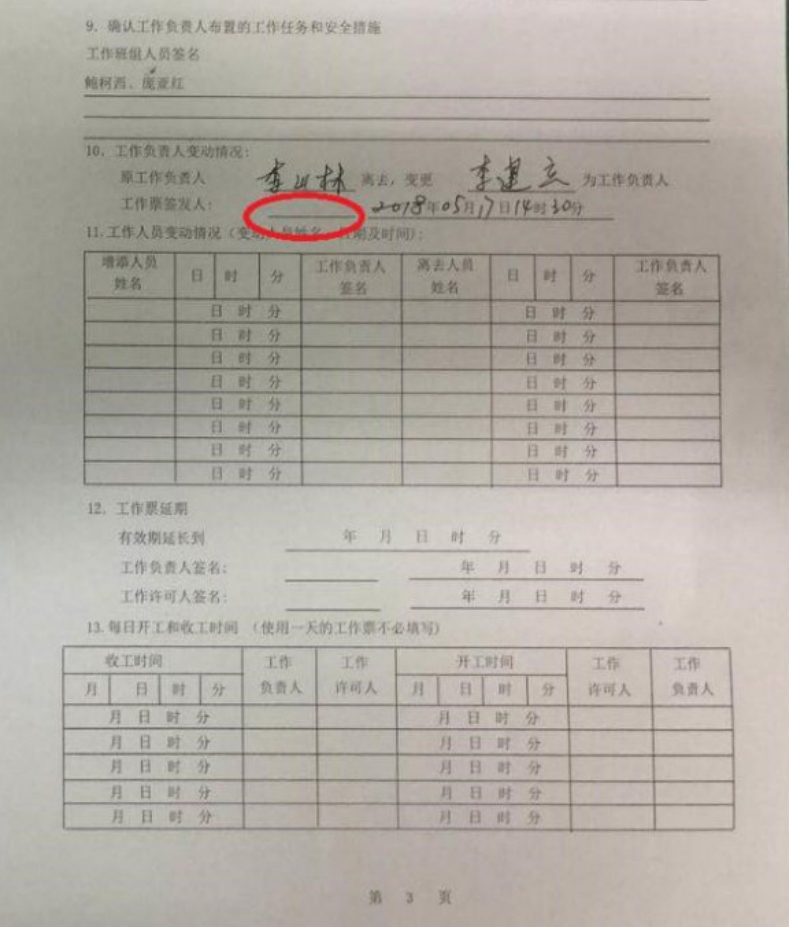 9. 确认工作负责人布置的工作任务和安全措施
工作班组人员签名
鲍柯西、庞亚红
10. 工作负责人变动情况:
原工作负责人 李山林 离去, 变更 李建立 为工作负责人
工作票签发人: 2018年05月17日14时30分
11. 工作人员变动情况 (变动人员姓名、日期及时间):
增添人员姓名 日 时 分 工作负责人签名 离去人员姓名 日 时 分 工作负责人签名
日 时 分 日 时 分
日 时 分 日 时 分
日 时 分 日 时 分
日 时 分 日 时 分
日 时 分 日 时 分
日 时 分 日 时 分
日 时 分 日 时 分
日 时 分 日 时 分
12. 工作票延期
有效期延长到 年 月 日 时 分
工作负责人签名: 年 月 日 时 分
工作许可人签名: 年 月 日 时 分
13. 每日开工和收工时间 (使用一天的工作票不必填写)
收工时间 工作负责人 工作许可人 开工时间 工作许可人 工作负责人
月 日 时 分 月 日 时 分
月 日 时 分 月 日 时 分
月 日 时 分 月 日 时 分
月 日 时 分 月 日 时 分
月 日 时 分 月 日 时 分
月 日 时 分 月 日 时 分
第 3 页